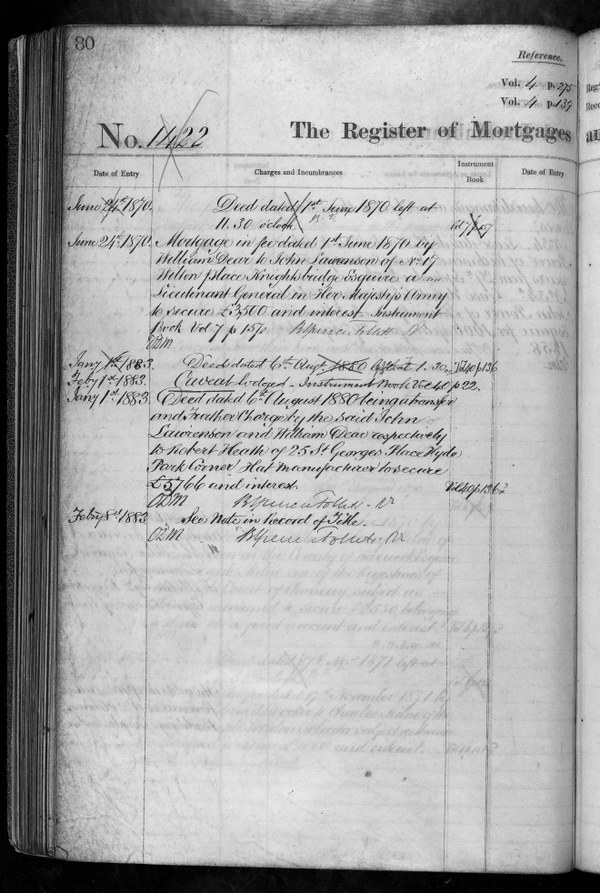 80
Reference.
Vol. 4 p. 275
Vol. 4 p. 139
No. 1422 The Register of Mortgages
Date of Entry Charges and Incumbrances Instrument Book Date of Entry
June 24th 1870. Deed dated 1st June 1870 left at
11.30 o'clock.
June 24th 1870. Mortgage in fee dated 1st June 1870 by
William Dear to John Lawrenson of No. 17
Wilton place Knightsbridge Esquire a
Lieutenant General in Her Majesty's Army
to secure £3500 and interest Instrument
Book Vol 7 p 157
Jany 1st 1883. Deed dated 6th Augt. 1880 left at 1.30 Vol 40 p 136
Feby 1st 1883. Caveat lodged - Instrument Book Vol 40 p 22.
Jany 1st 1883 Deed dated 6th August 1880 being a transfer
and Further Charge by the said John
Lawrenson and William Dear respectively
to Robert Heath of 25 St Georges Place Hyde
Park Corner Hat manufacturer to secure
£5766 and interest. Vol 40 p 136
Feby 8th 1883 See Note in Record of Title.